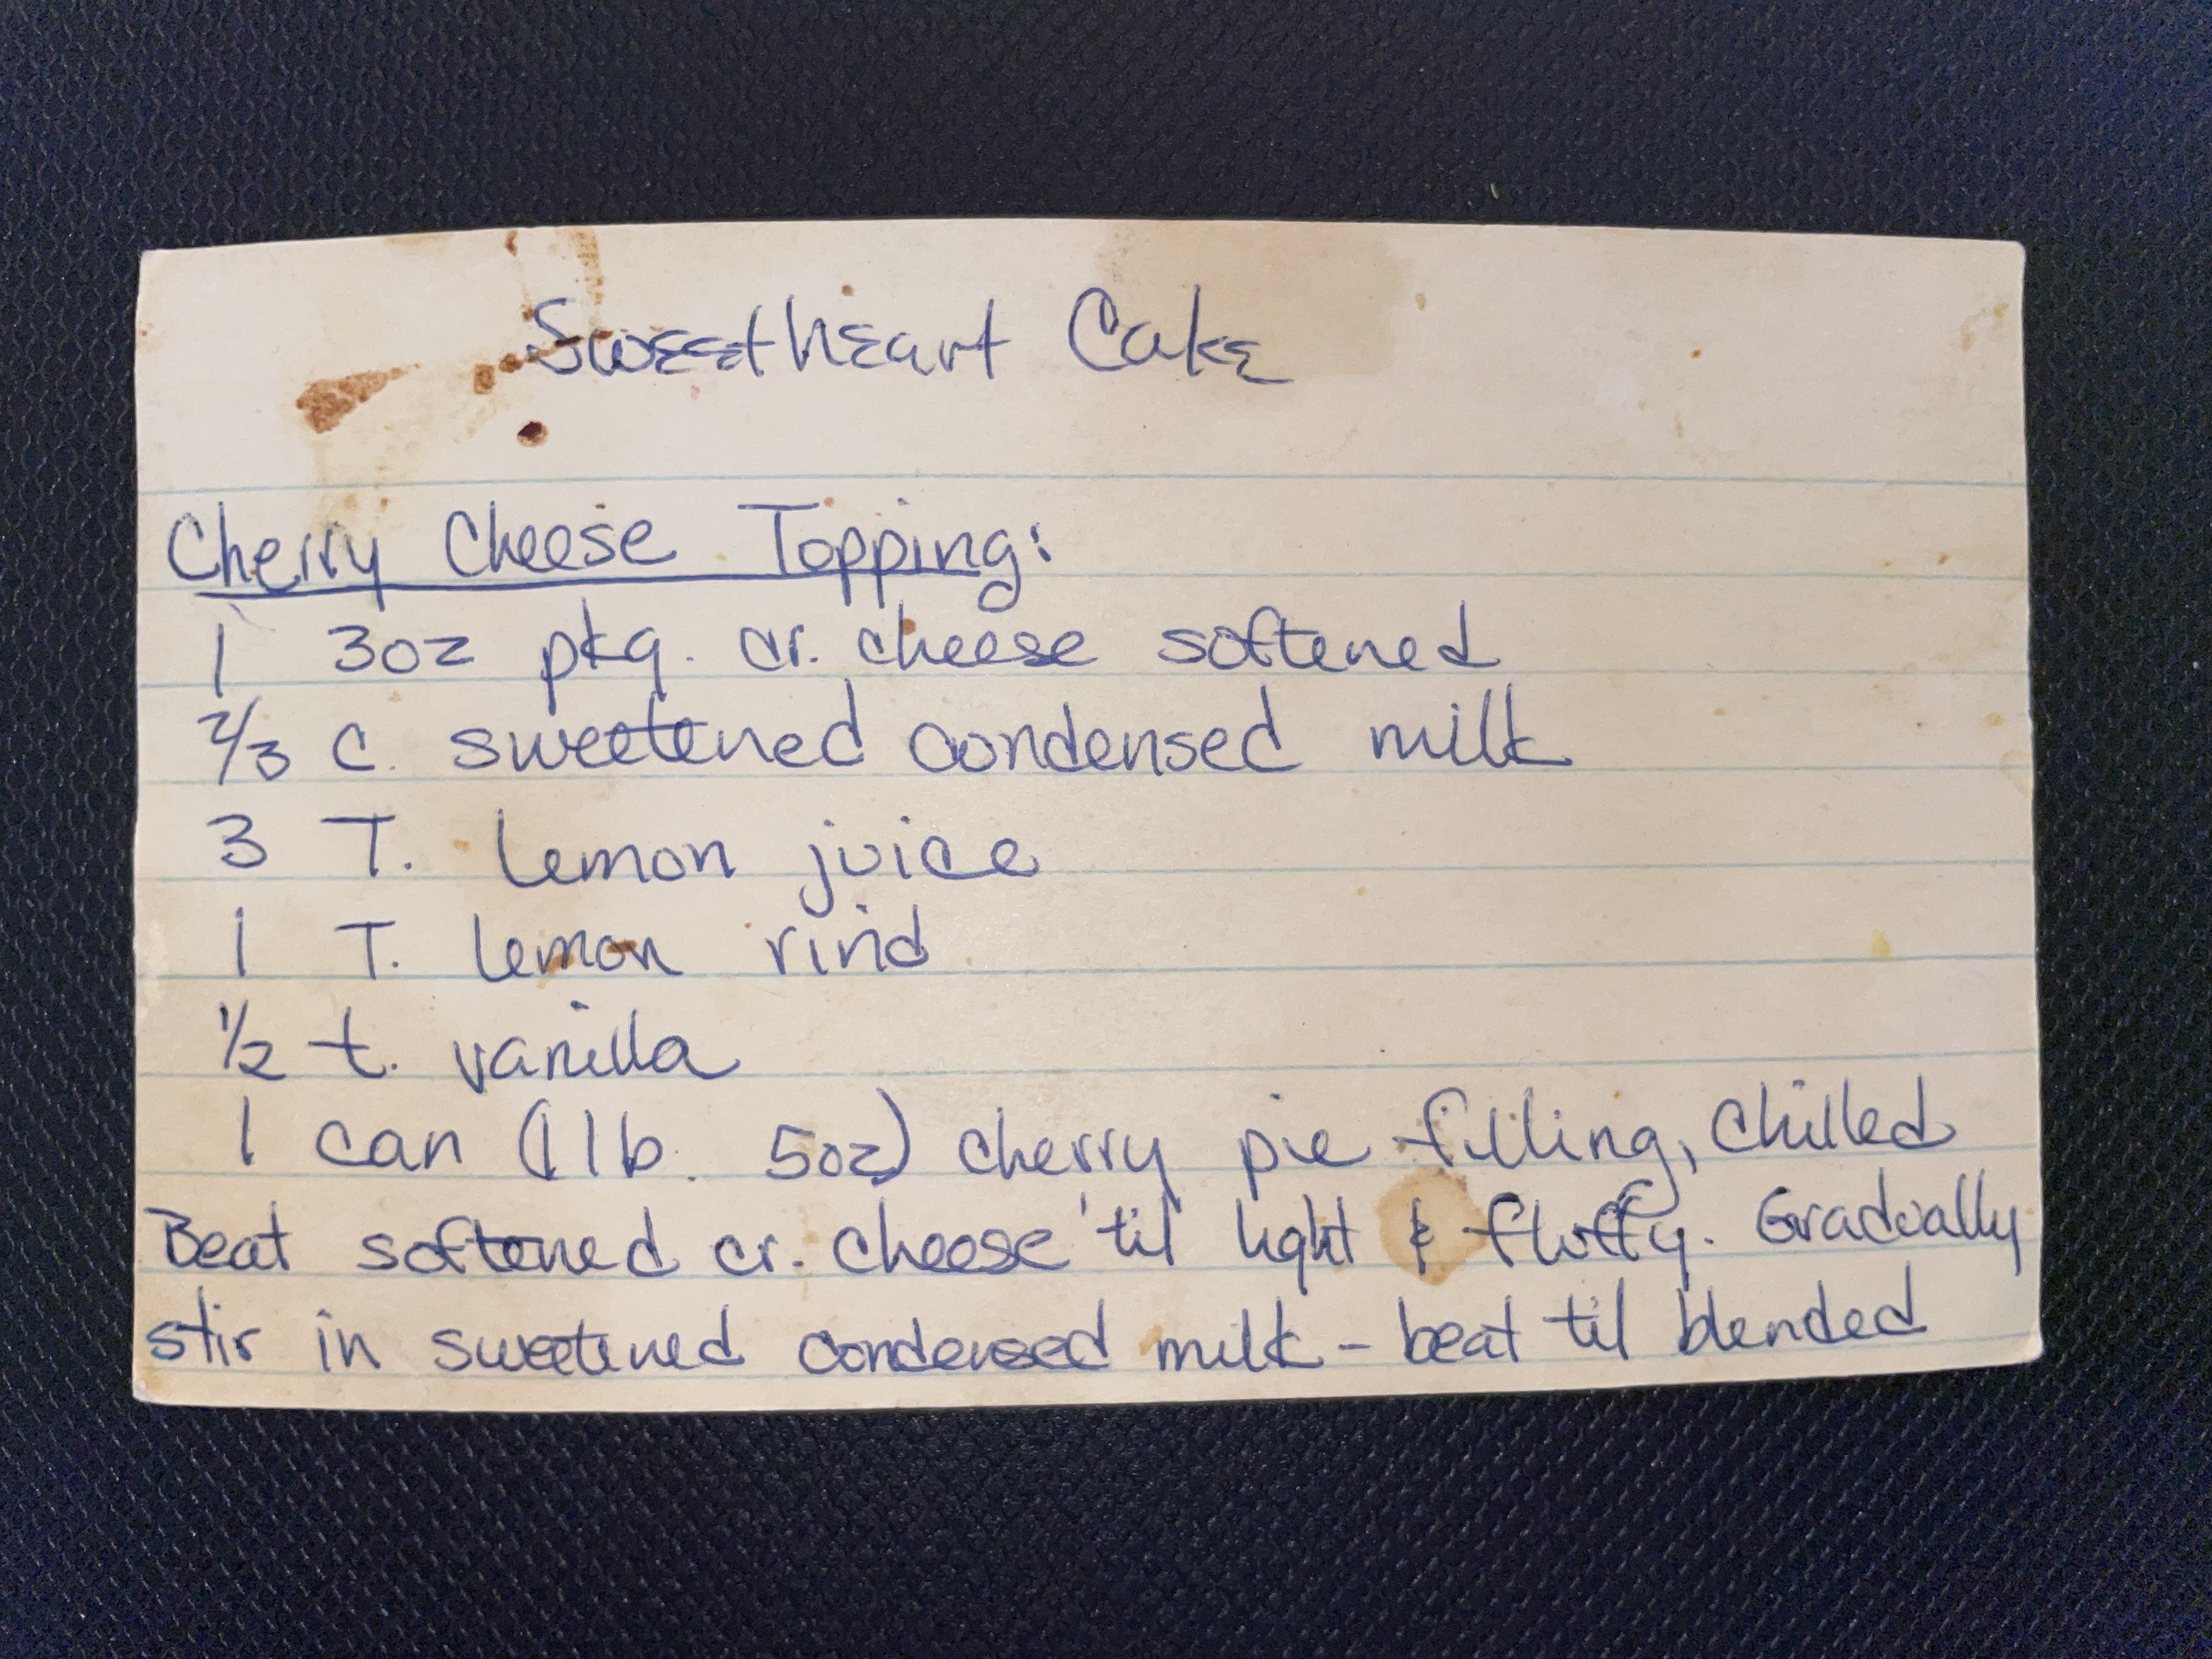 Sweetheart Cake
Cherry Cheese Topping:
1 3oz pkg. cr. cheese softened
2/3 c. sweetened condensed milk
3 T. lemon juice
1 T. lemon rind
1/2 t. vanilla
1 can (1 lb. 5oz) cherry pie filling, chilled
Beat softened cr. cheese 'til light & fluffy. Gradually
stir in sweetened condensed milk - beat til blended